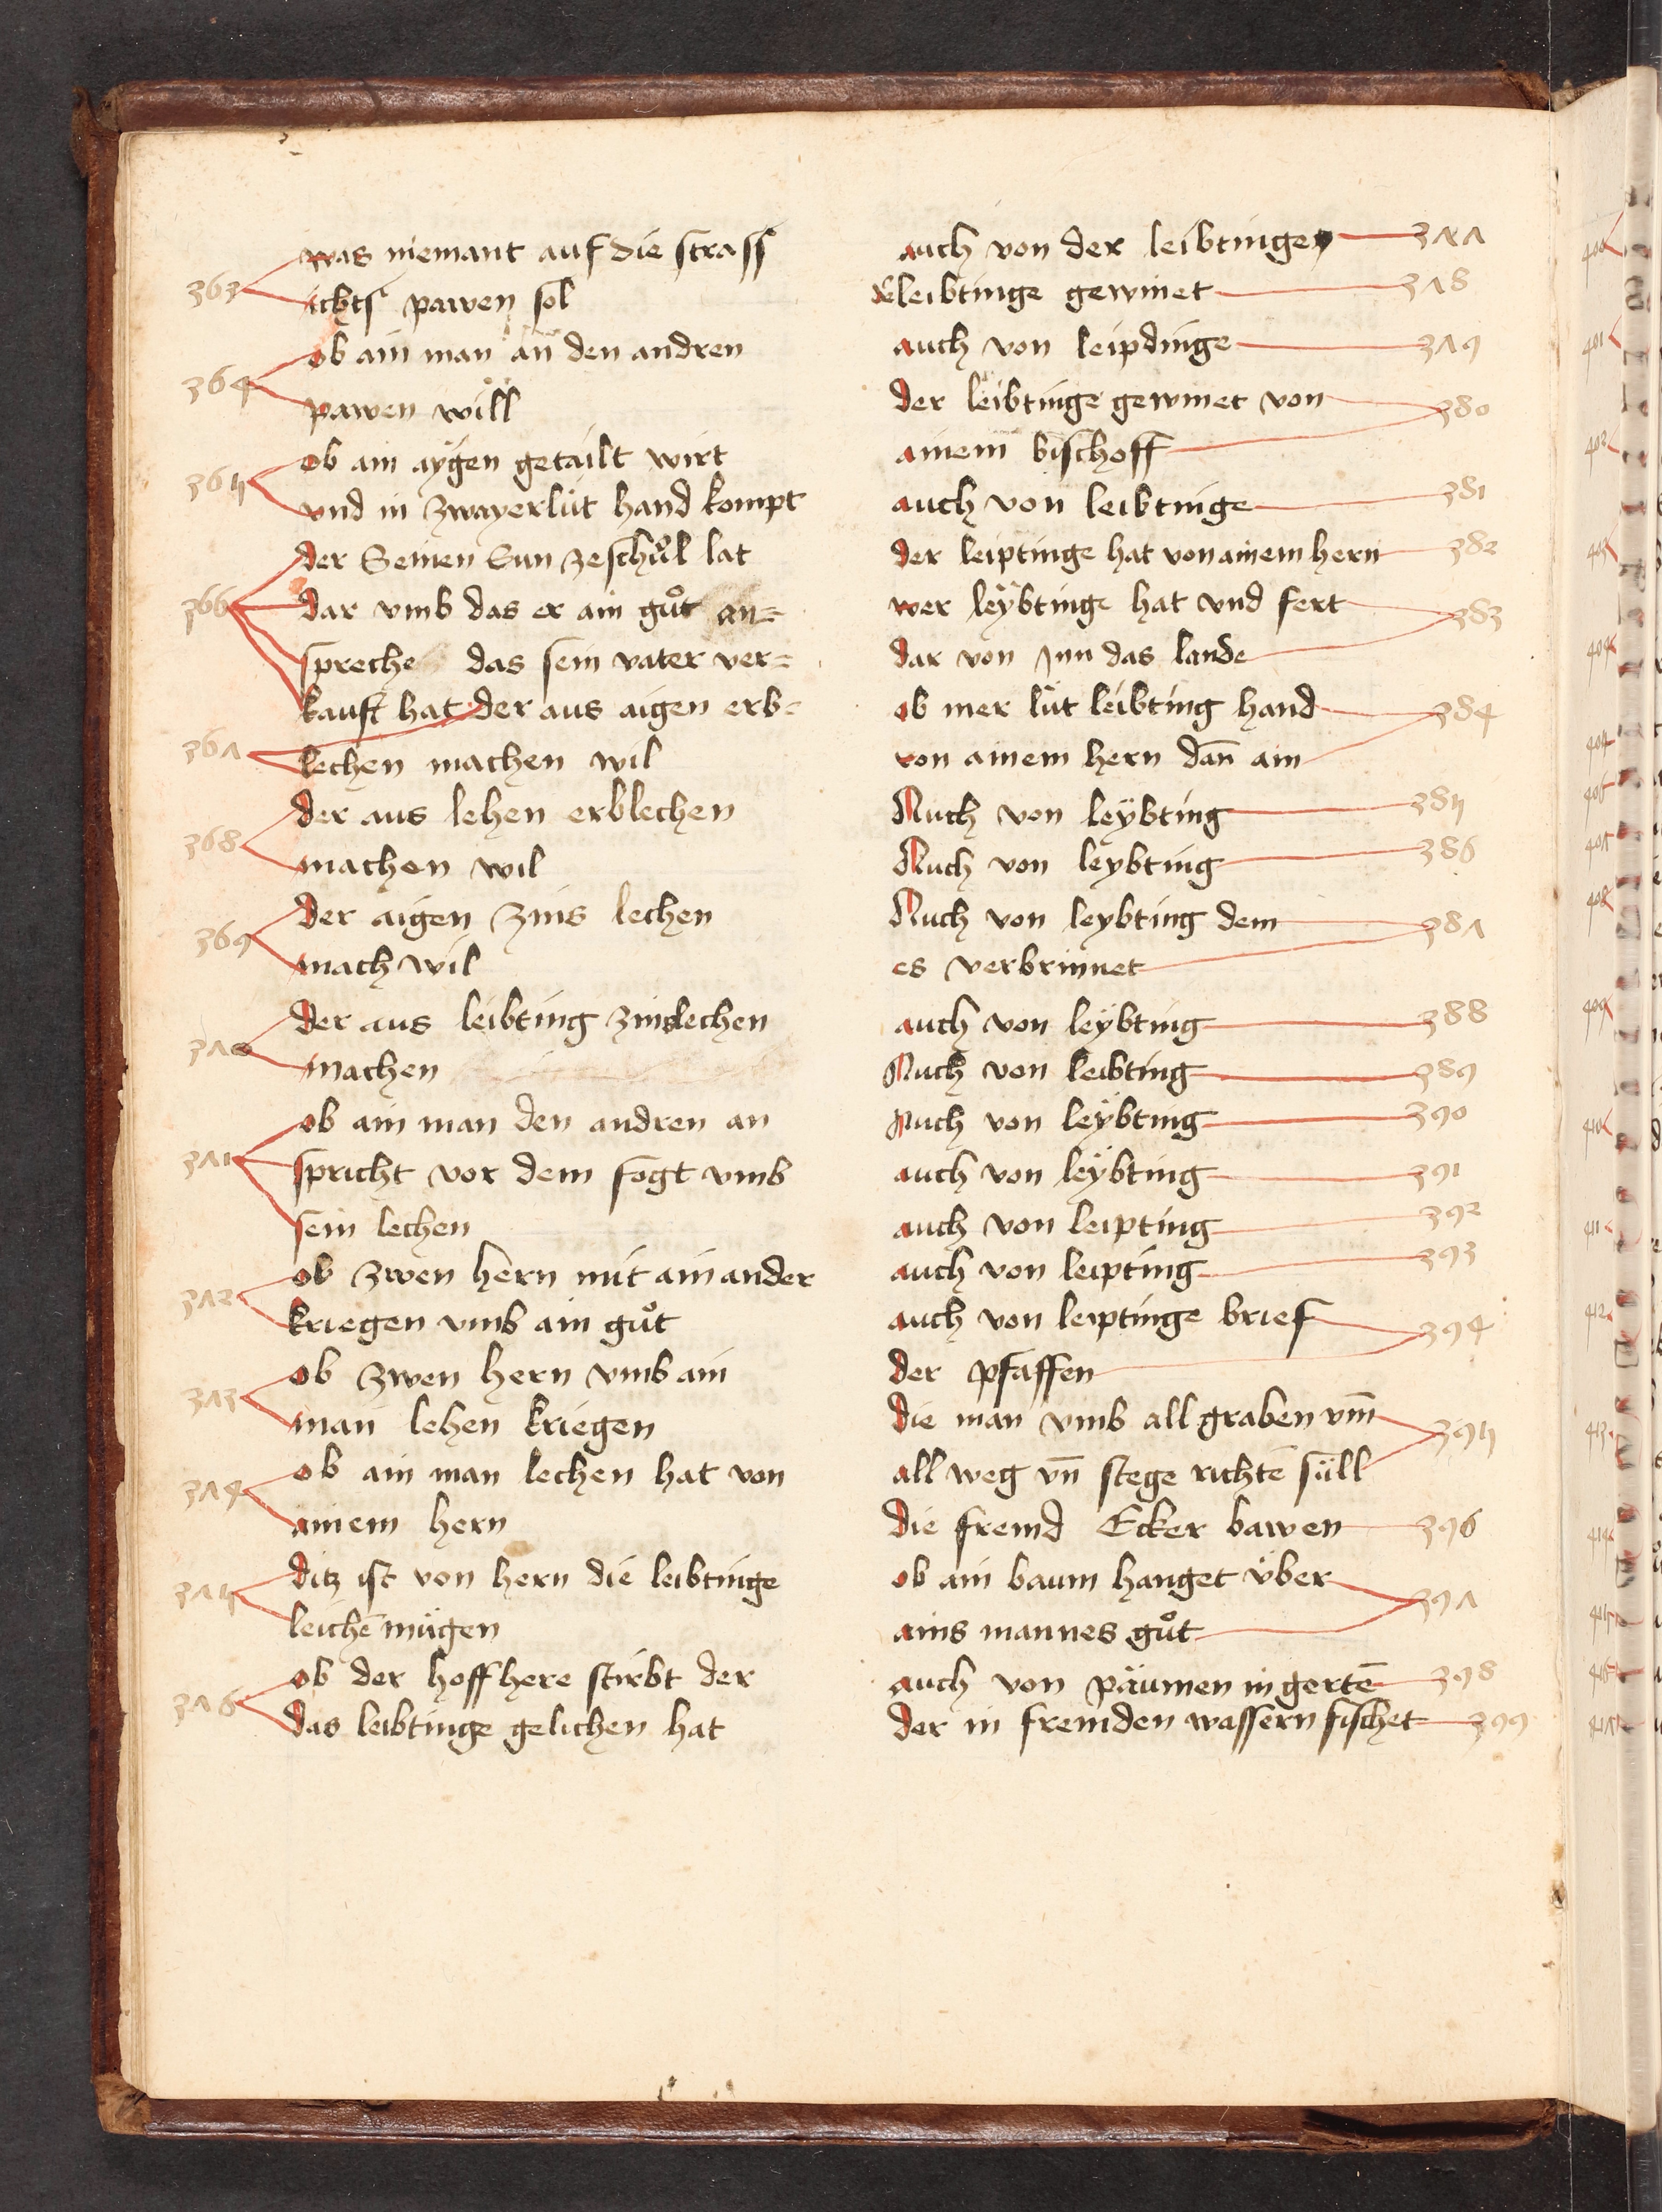 363 was niemant auf die strass
ichts pawen sol
364 ob ain man an den andren
pawen will
365 ob ain aÿgen getailt wirt
vnd in zwayerlüt hand kompt
366 der Seinen Sun zeschuͦl lat
dar vmb das er ain guͦt an=
spreche das sein vater ver=
kauft hat der aus aigen erb=
367 lechen machen wil
368 der aus lehen erblechen
machen wil
369 der aigen zins lechen
mach wil
370 der aus leibting zinslechen
machen
371 ob ain man den andren an
spricht vor dem fogt vmb
sein lechen
372 ob zwen hern mit ain ander
kriegen vmb ain guͦt
373 ob zwen hern vmb ain
man lehen kriegen
374 ob ain man lechen hat von
ainem hern
375 ditz ist von hern die leibtinge
leichē mügen
376 ob der hoff here stirbt der
das leibtinge gelichen hat
auch von der leibtinge 377
leibtinge gewinet 378
auch von leipdinge 379
der leibtinge gewinet von
ainem bischoff 380
auch von leibtinge 381
der leiptinge hat von ainem hern 382
wer leÿbtinge hat vnd fert
dar von Inn das lande 383
ob mer lüt leibting hand
von ainem hern dan̄ ain 384
Auch von leÿbting 385
Auch von leybting 386
Auch von leybting dem
es verbrinnet 387
auch von leÿbting 388
Auch von leibting 389
Auch von leÿbting 390
auch von leÿbting 391
auch von leipting 392
auch von leipting 393
auch von leiptinge brief
der pfaffen 394
die man vmb all graben vm̄
all weg vn̄ stege richtē süll 395
die fremd Ecker bawen 396
ob ain baum hanget über
ains mannes guͦt 397
auch von päumen in gertē 398
der in fremden wassern fischet 399